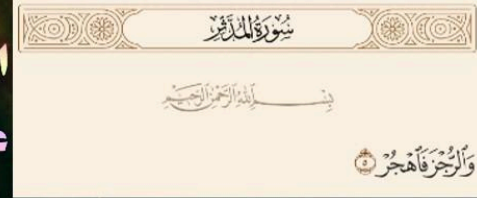 سُورَةُ المُدَّثِّرِ
بِسْمِ اللَّهِ الرَّحْمَٰنِ الرَّحِيمِ
وَٱلرُّجْزَ فَٱهْجُرْ ٥